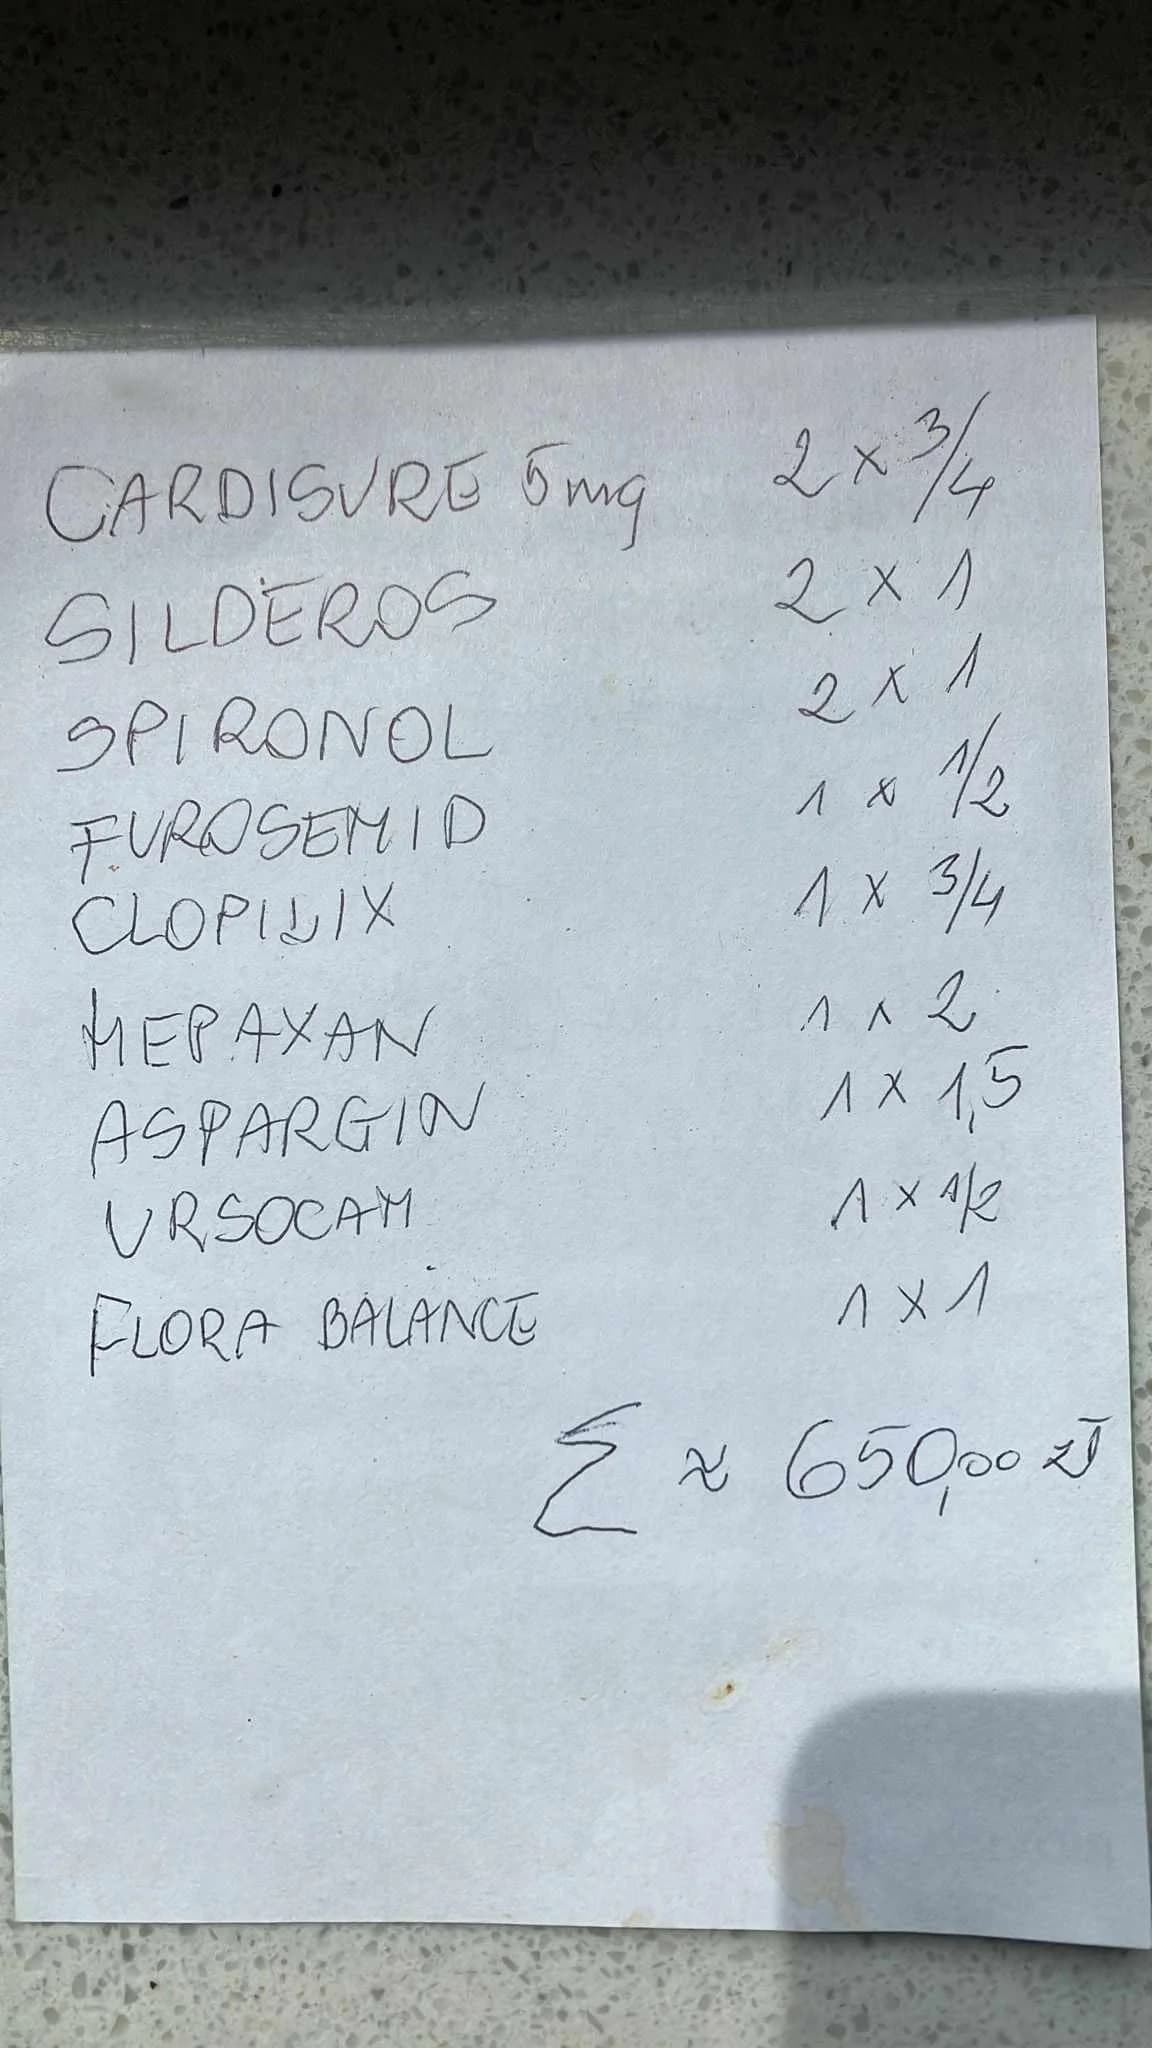 CARDISURE 5mg 2 x 3/4
SILDEROS 2 x 1
SPIRONOL 2 x 1
FUROSEMID 1 x 1/2
CLOPIDIX 1 x 3/4
HEPAXAN 1 x 2
ASPARGIN 1 x 1,5
URSOCAM 1 x 1/2
FLORA BALANCE 1 x 1
Σ ≈ 650,00 zł